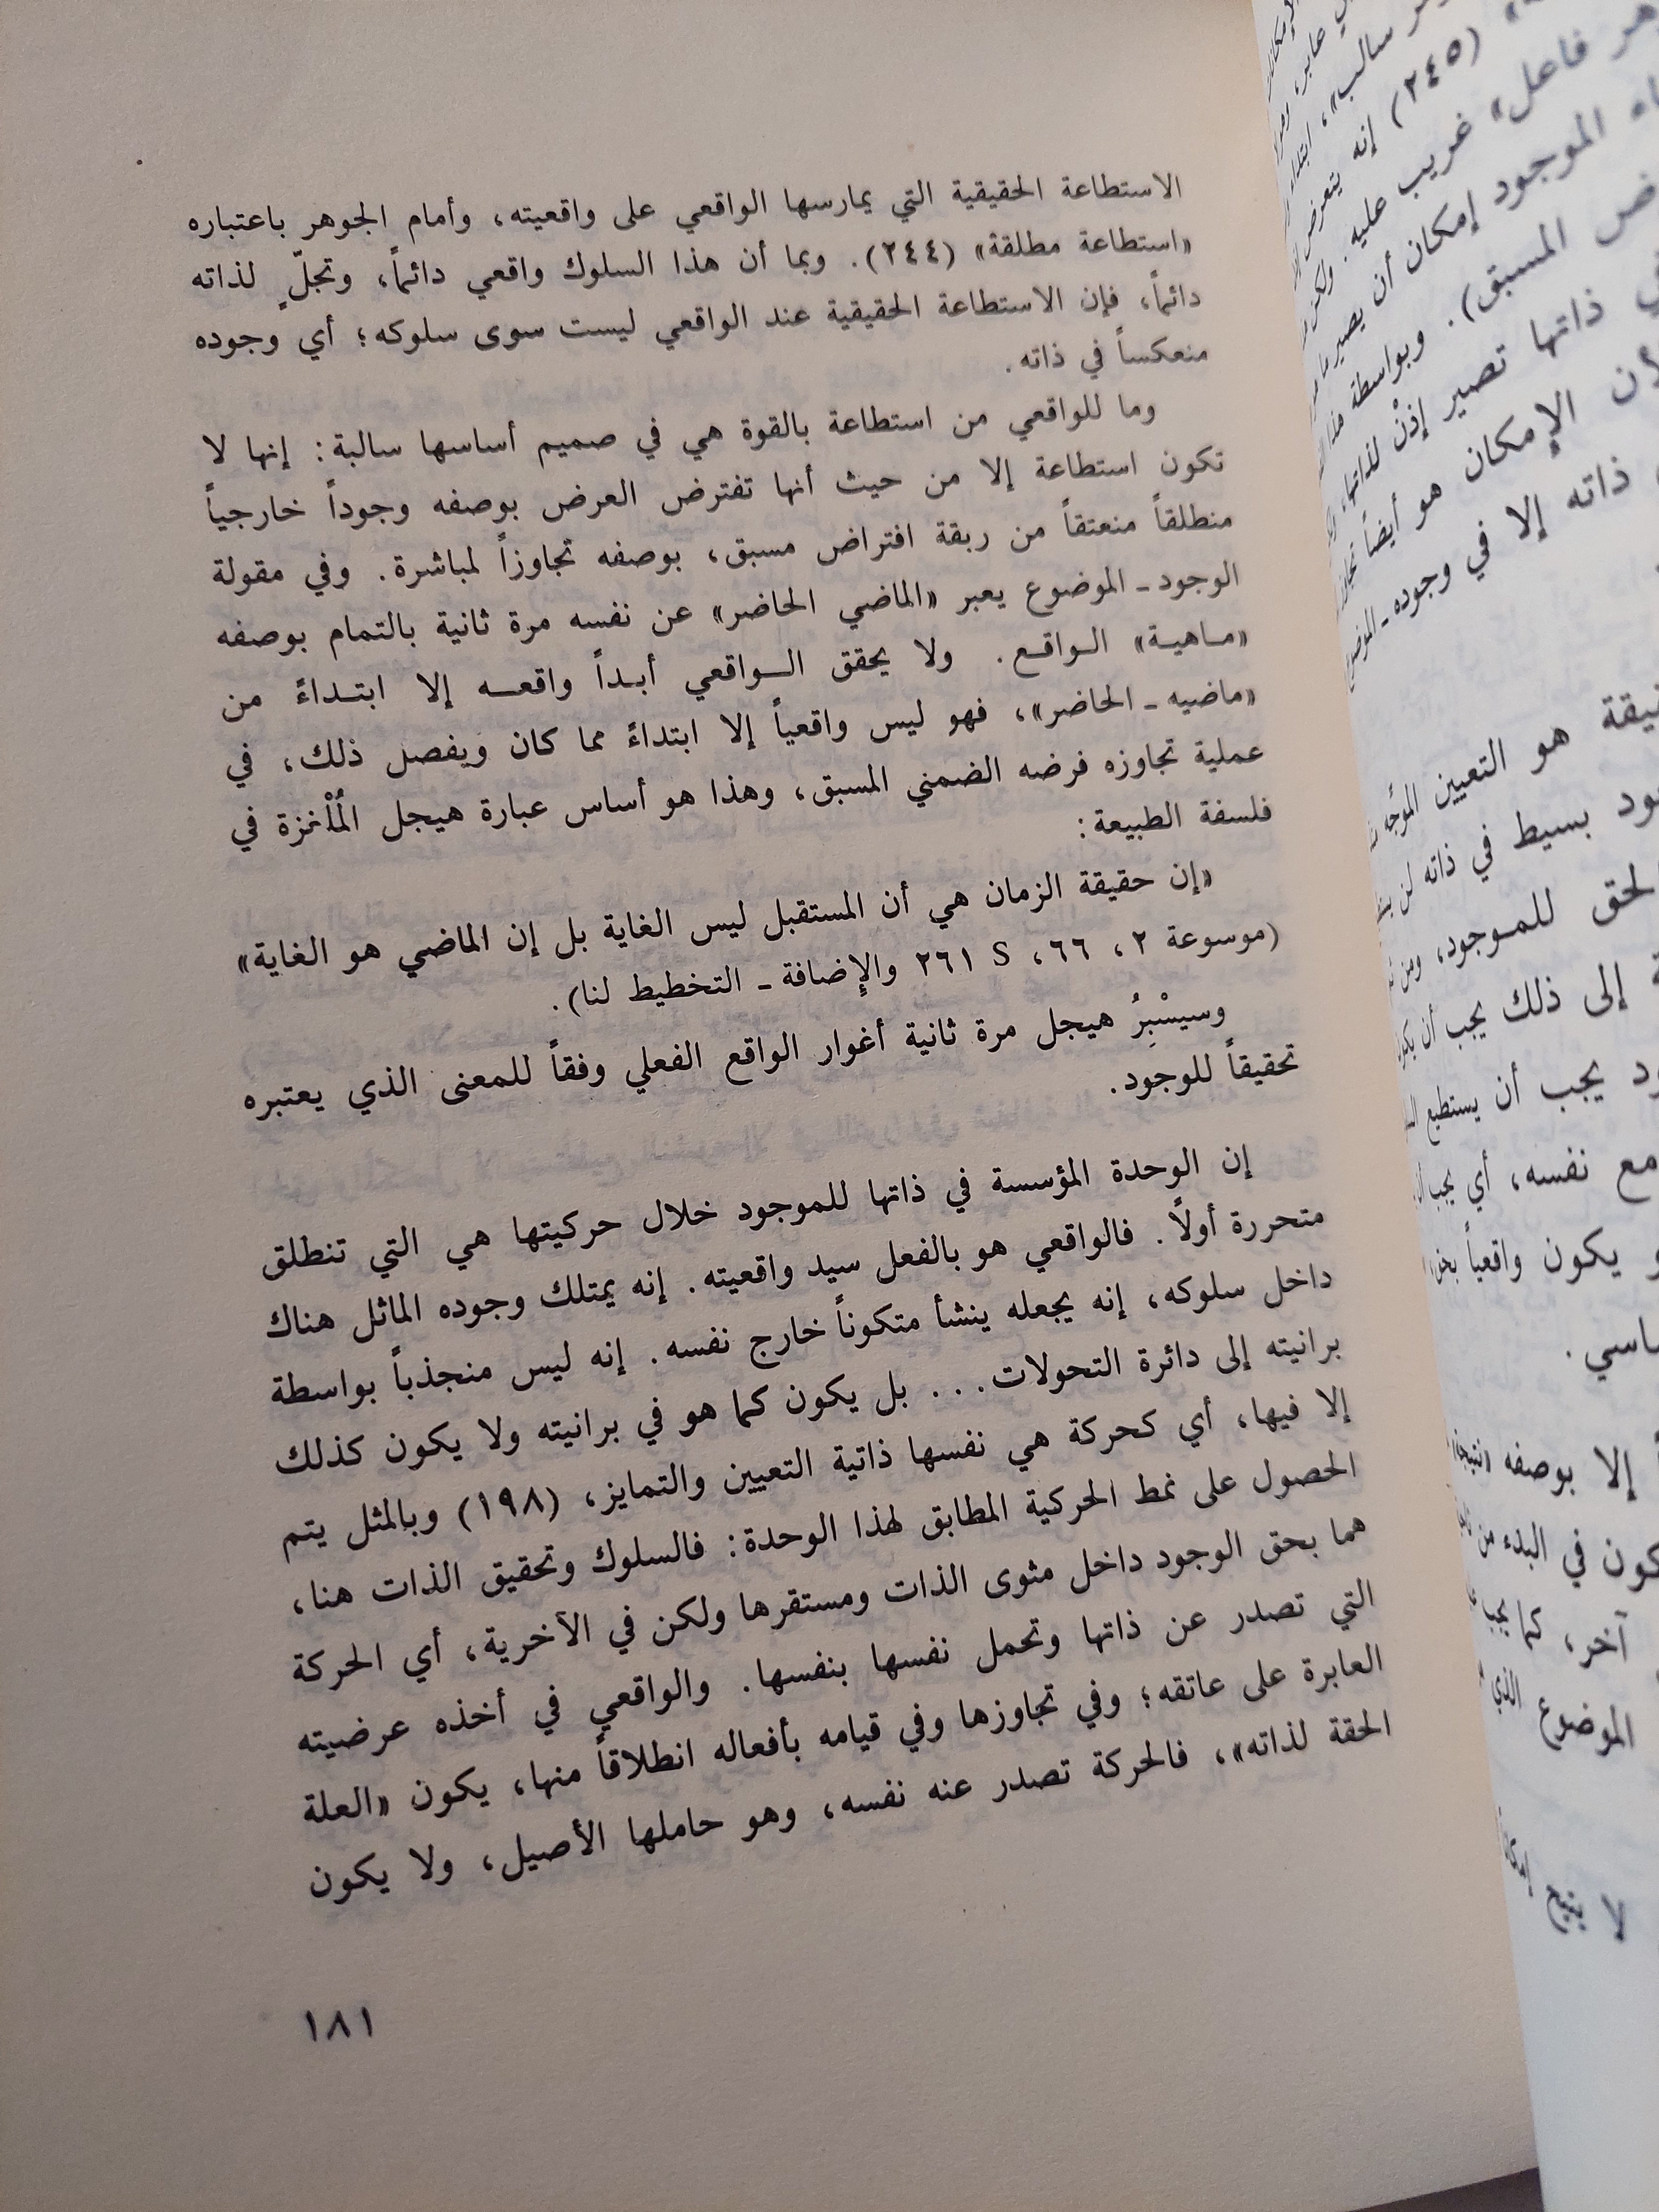 الاستطاعة الحقيقية التي يمارسها الواقعي على واقعيته، وأمام الجوهر باعتباره
«استطاعة مطلقة» (٢٤٤). وبما أن هذا السلوك واقعي دائماً، وتجلّ لذاته
دائماً، فإن الاستطاعة الحقيقية عند الواقعي ليست سوى سلوكه؛ أي وجوده
منعكساً في ذاته.
وما للواقعي من استطاعة بالقوة هي في صميم أساسها سالبة: إنها لا
تكون استطاعة إلا من حيث أنها تفترض العرض بوصفه وجوداً خارجياً
منطلقاً منعتقاً من ربقة افتراض مسبق، بوصفه تجاوزاً لمباشرة. وفي مقولة
الوجود ـ الموضوع يعبر «الماضي الحاضر» عن نفسه مرة ثانية بالتمام بوصفه
«ماهية» الواقع. ولا يحقق الواقعي أبداً واقعه إلا ابتداءً من
«ماضيه ـ الحاضر»، فهو ليس واقعياً إلا ابتداءً مما كان ويفصل ذلك، في
عملية تجاوزه فرضه الضمني المسبق، وهذا هو أساس عبارة هيجل في
فلسفة الطبيعة:
«إن حقيقة الزمان هي أن المستقبل ليس الغاية بل إن الماضي هو الغاية»
(موسوعة ٢، ٦٦، S ٢٦١ والإضافة ـ التخطيط لنا).
وسيسْبِرُ هيجل مرة ثانية أغوار الواقع الفعلي وفقاً للمعنى الذي يعتبره
تحقيقاً للوجود.
إن الوحدة المؤسسة في ذاتها للموجود خلال حركيتها هي التي تنطلق
متحررة أولاً. فالواقعي هو بالفعل سيد واقعيته. إنه يمتلك وجوده الماثل هناك
داخل سلوكه، إنه يجعله ينشأ متكوناً خارج نفسه. إنه ليس منجذباً بواسطة
برانيته إلى دائرة التحولات... بل يكون كما هو في برانيته ولا يكون كذلك
إلا فيها، أي كحركة هي نفسها ذاتية التعيين والتمايز، (١٩٨) وبالمثل يتم
الحصول على نمط الحركية المطابق لهذا الوحدة: فالسلوك وتحقيق الذات هنا،
هما بحق الوجود داخل مثوى الذات ومستقرها ولكن في الآخرية، أي الحركة
التي تصدر عن ذاتها وتحمل نفسها بنفسها. والواقعي في أخذه عرضيته
العابرة على عاتقه؛ وفي تجاوزها وفي قيامه بأفعاله انطلاقاً منها، يكون «العلة
الحقة لذاته»، فالحركة تصدر عنه نفسه، وهو حاملها الأصيل، ولا يكون
١٨١